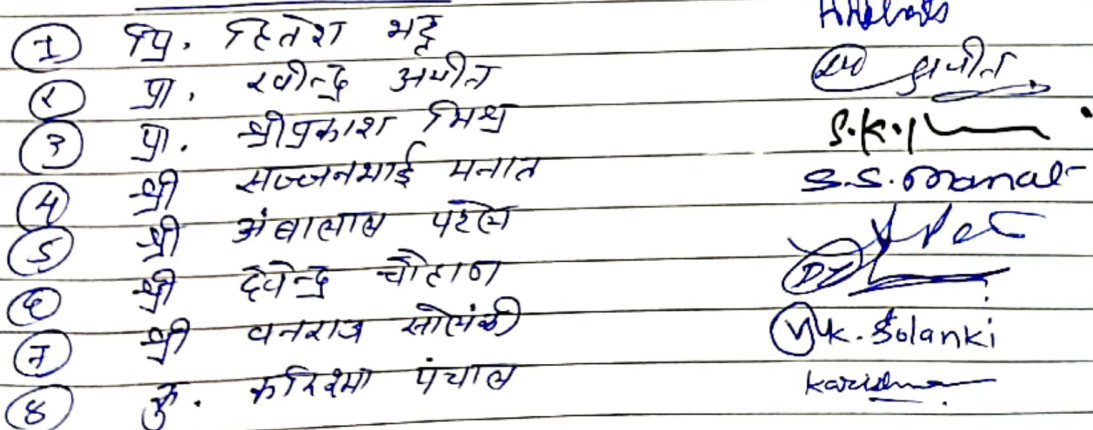 ① प्रि. हितेश भट्ट
② प्रा. रवीन्द्र अमीन
③ प्रा. श्रीप्रकाश मिश्र S.K.
④ श्री सज्जनभाई मनात S.S. Manat
⑤ श्री अंबालाल पटेल
⑥ श्री देवेन्द्र चौहाण
⑦ श्री वनराज सोलंकी V.K. Solanki
⑧ कु. करिश्मा पंचाल Karishma